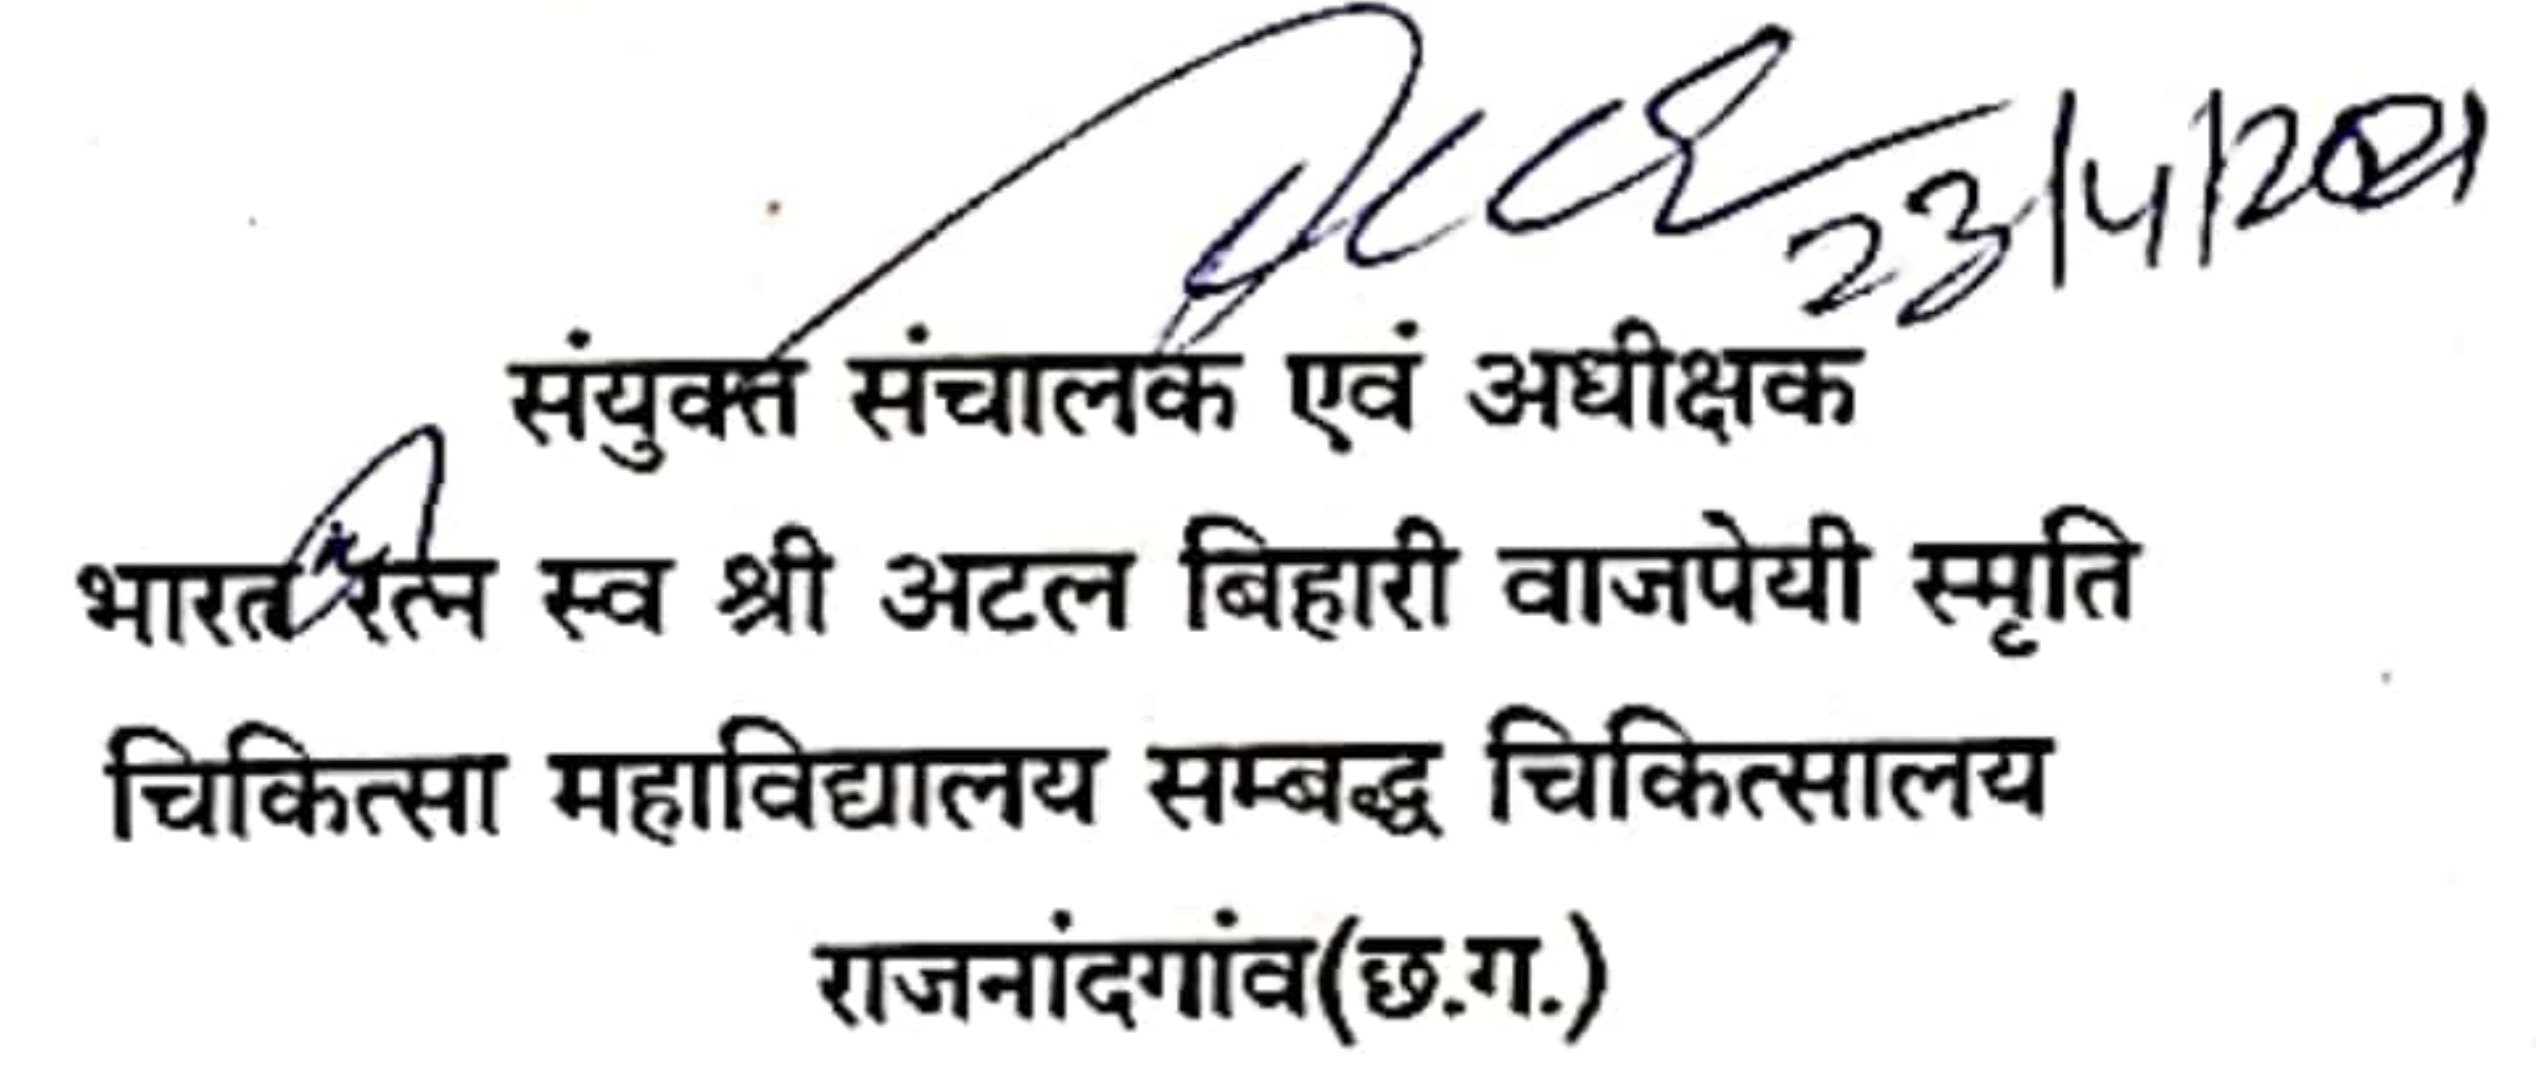 23/4/2021
संयुक्त संचालक एवं अधीक्षक
भारत रत्न स्व श्री अटल बिहारी वाजपेयी स्मृति
चिकित्सा महाविद्यालय सम्बद्ध चिकित्सालय
राजनांदगांव(छ.ग.)